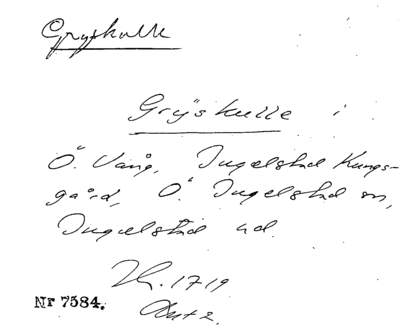 Gryskulle
Gryskulle i
Ö. Vång, Ingelstad Kungs-
gård, Ö. Ingelstad sn,
Ingelstad hd.
1719
Nr 7584.